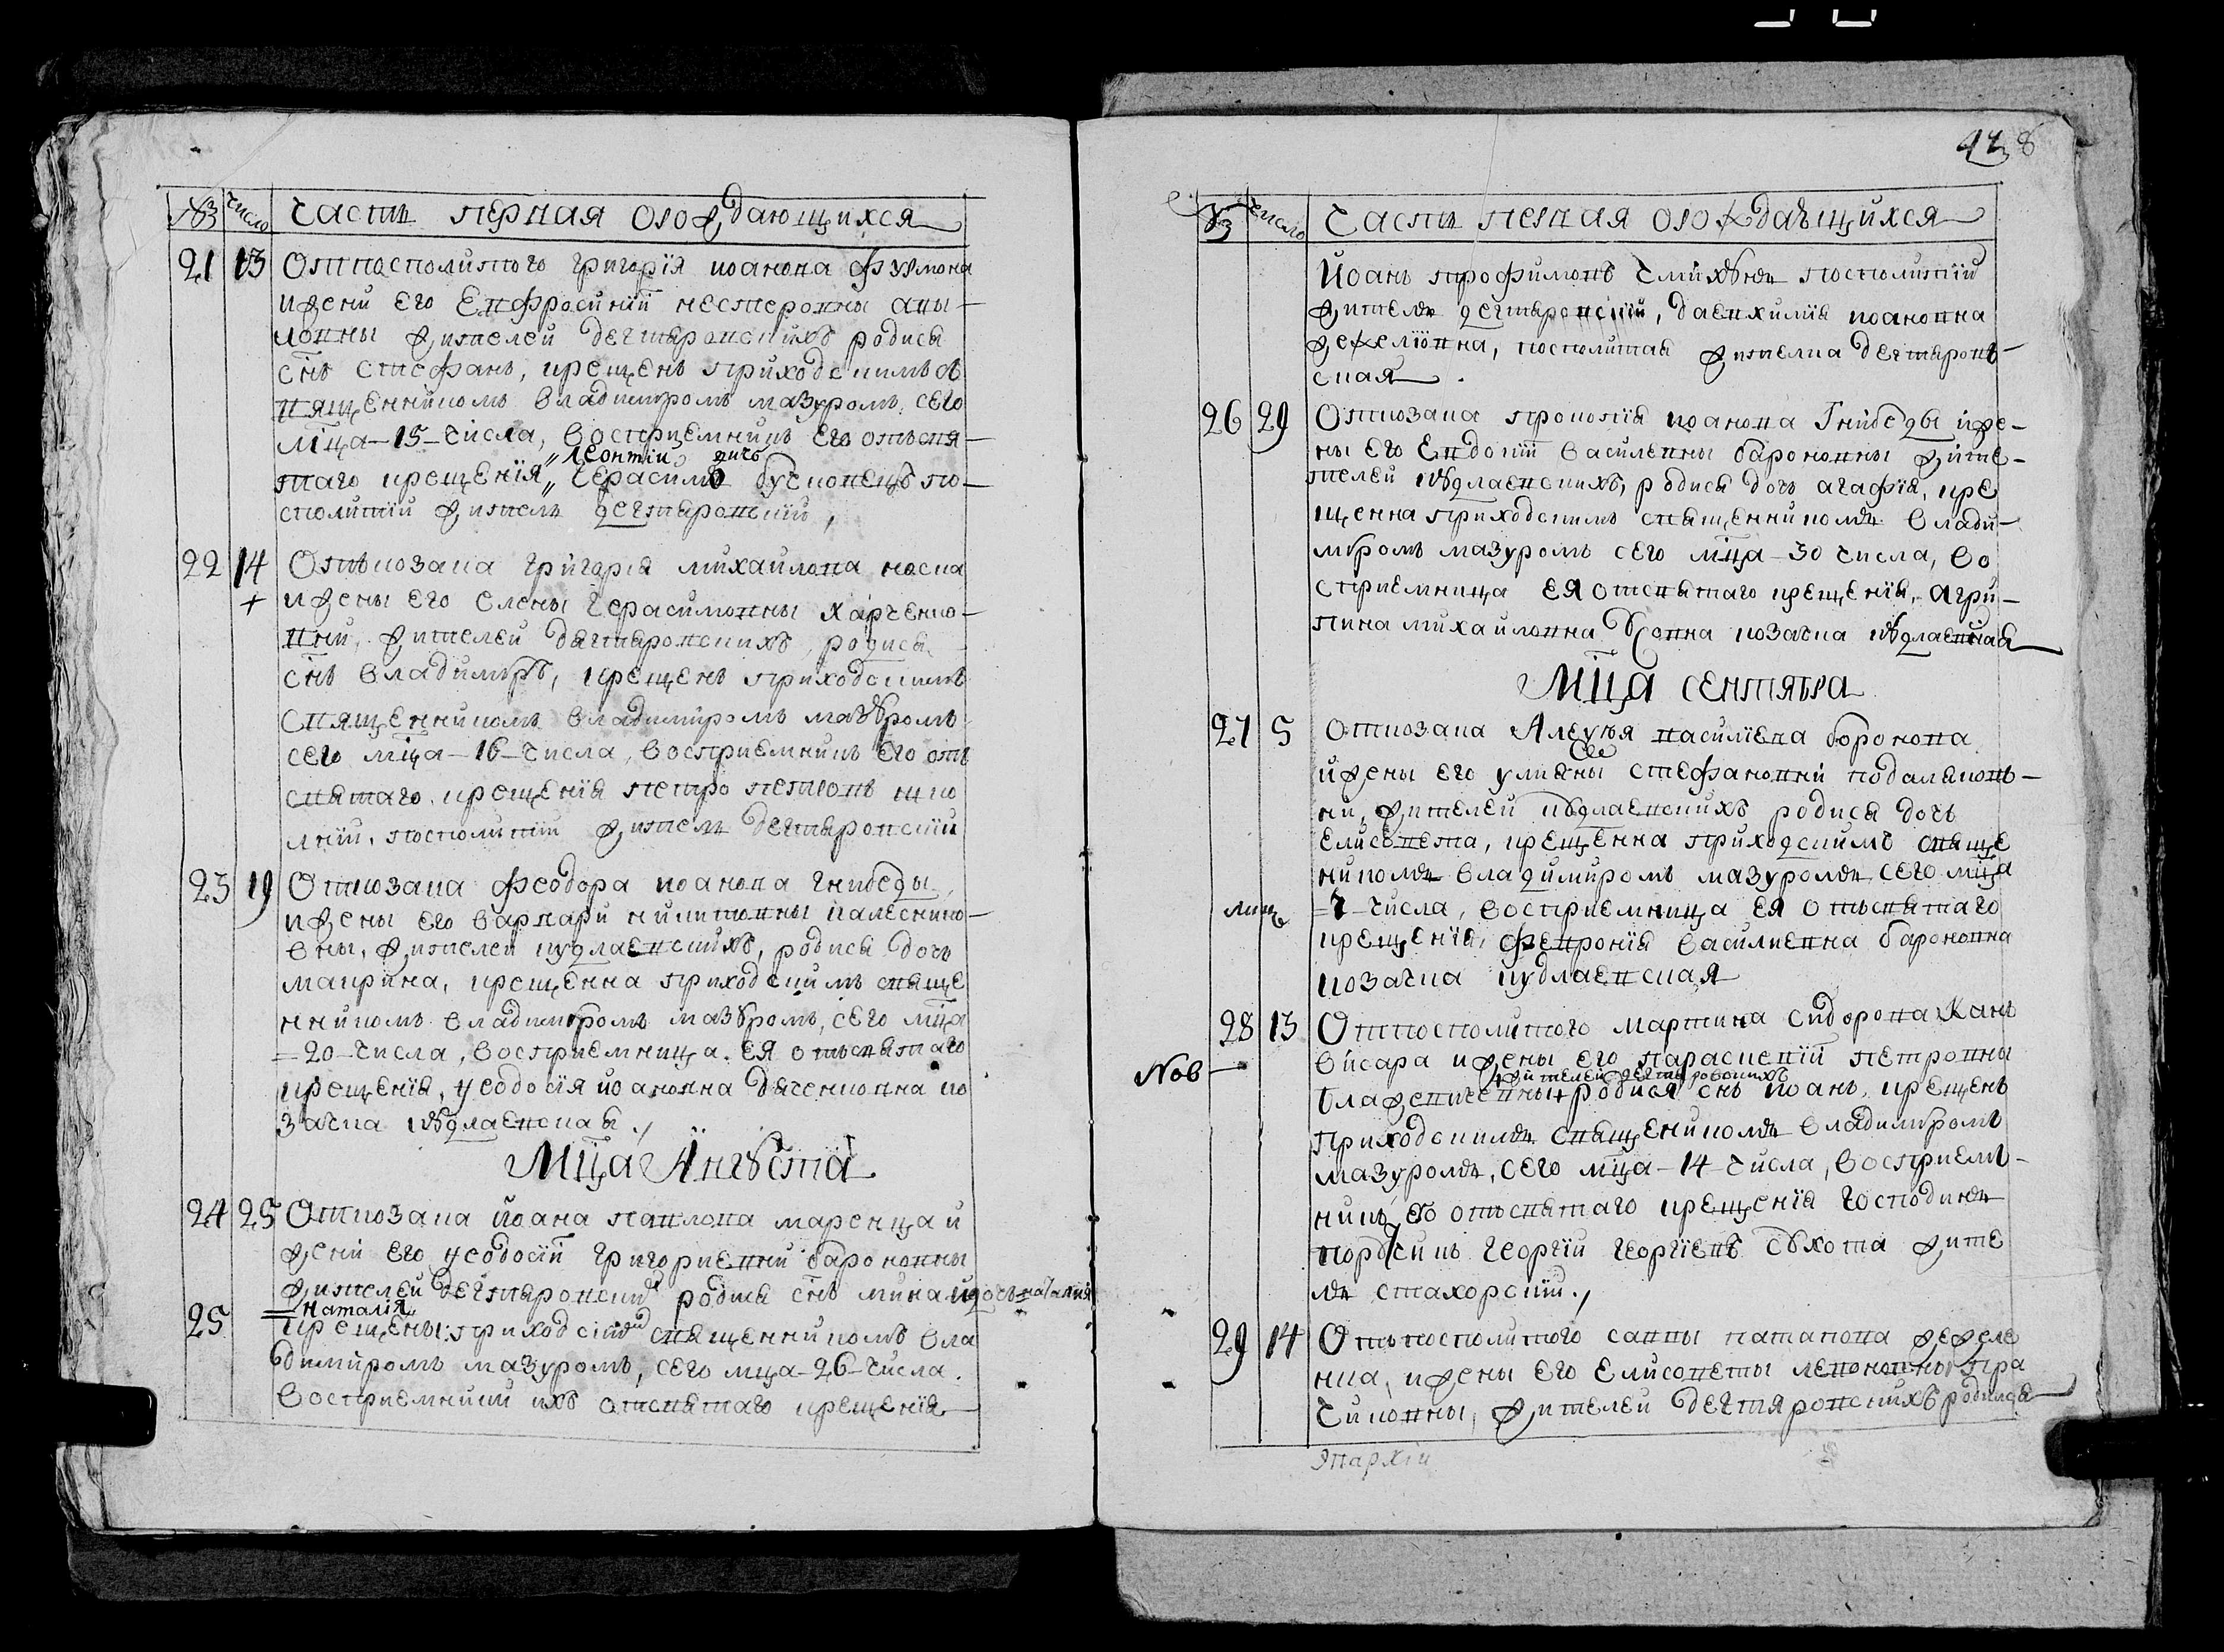 № число Часть первая орождающихся
21 13 Отпосполитого григорія иоанова физмона
ижени его Евфросинїй нестеровны ацы-
ловны жителей дегтяровскихъ родися
снъ стефанъ, крещенъ приходскимъ св
ященникомъ владимиромъ мазуромъ, сего
мца-15-числа, восприемникъ его отъсвя-
таго крещенїя "леонтій дичъ герасимъ бусковецъ по-
сполитїй житель дегтяровскїй,
22 14 Отъкозака григорія михаилова носка
+ ижены его елены герасимовны харченко-
вни, жителей дегтяровскихъ, родися
снъ владимѣръ, крещенъ приходскимъ
священникомъ владимиромъ мазуромъ
сего мца-16-числа, восприемникъ его отъ
святаго крещенія петро петровъ шко
лнїй, посполитїй житель дегтяровскїй
23 19 Откозака феодора иоанова гнибеды,
ижены его варвари никитовны калеснико-
вны, жителей кудлаевскихъ, родися дочь
маврина, крещенна приходскимъ свяще
нникомъ владимиромъ мазуромъ, сего мца
=20-числа, восприемница ея отъсвятаго
крещенія, ѳеодосія иоановна дяченковна ко
зачка кудлаевская.,
Мца Августа
24 25 Откозака иоана павлова маренца и
жени его ѳеодосїй григориевни бароновны
жителей дегтяровских родися снъ михаил дочь наталія
25 = наталія
крещены: приходскимъ священникомъ вла
димиромъ мазуромъ, сего мца-26-числа.
восприемники ихъ отсвятаго крещенія
428
№ число Часть первая орождающихся
иоанъ трофимовъ посполитїй
житель дегтяровскїй, даевхилїя иоановна
жежелїовна, посполитая жителка дегтяров-
ская.
26 29 Откозака прокопія иоанова Гнибеды іже-
ны его Евдокїй василевны бароновны жите-
телей кудлаевскихъ, родися дочь агафїя, кре
щенна приходскимъ священникомъ влади-
миромъ мазуромъ сего мца-30 числа, во
сприемница ея отсвятаго крещенія, агри-
пина михаиловна козачка кудлаевская
Мца сентября
27 5 Откозака Алеѯѣя василїева боронова
ижены его улияны стефановни
ни, жителей кудлаевскихъ родися дочь
елисавета, крещенна приходскимъ свяще
никомъ владимиромъ мазуромъ сего мца
=7-числа, восприемница ея отъсвятаго
крещенія, февронія василиевна бароновна
козачка кудлаевская
28 13 Отпосполитого мартина сидорова Кан
Nов- вїсара ижены его параскевїй петровны
жителей дегтяровскихъ
родися снъ иоанъ, крещенъ
приходскимъ священикомъ владимиромъ
мазуромъ, сего мца-14-числа, восприем-
никъ его отъсвятаго крещенія господинъ
георгїй георгїевъ сухота жите
ль стахорскїй.,
29 14 Отъпосполитого саввы патапова жежеле
нка, ижены его елисаветы
жителей дегтяровскихъ родился
Эпархіи